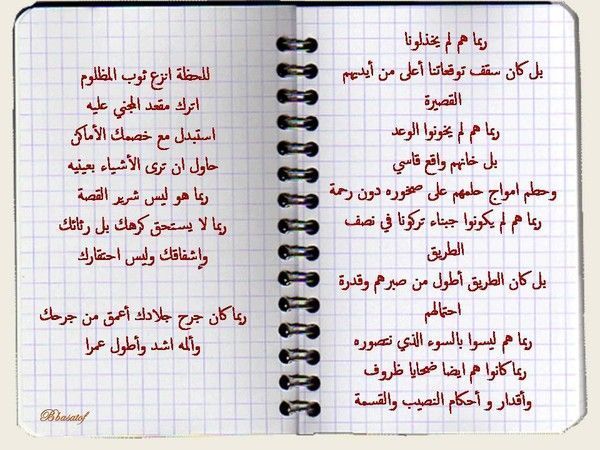 ربما هم لم يخذلونا
بل كان سقف توقعاتنا أعلى من أيديهم
القصيرة
ربما هم لم يخونوا الوعد
بل خانهم واقع قاسي
وحطم امواج حلمهم على صخوره دون رحمة
ربما هم لم يكونوا جبناء تركونا في نصف
الطريق
بل كان الطريق أطول من صبرهم وقدرة
احتمالهم
ربما هم ليسوا بالسوء الذي نتصوره
ربما كانوا هم ايضا ضحايا ظروف
وأقدار و أحكام النصيب والقسمة
للحظة انزع ثوب المظلوم
اترك مقعد المجني عليه
استبدل مع خصمك الأماكن
حاول ان ترى الأشياء بعينيه
ربما هو ليس شرير القصة
ربما لا يستحق كرهك بل رثائك
وإشفاقك وليس احتقارك
ربما كان جرح جلادك أعمق من جرحك
وألمه اشد وأطول عمرا
Bbasatof